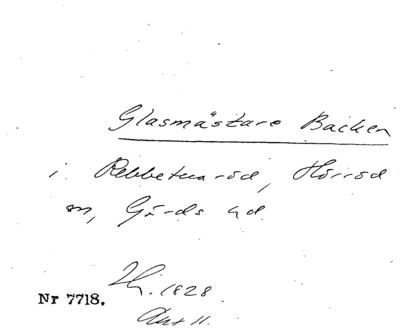 Glasmästare Backen
i Rebbetuaröd, Hörröd
sn, Gärds hd.
Nr 7718.
Hj. 1828.
Akt 11.